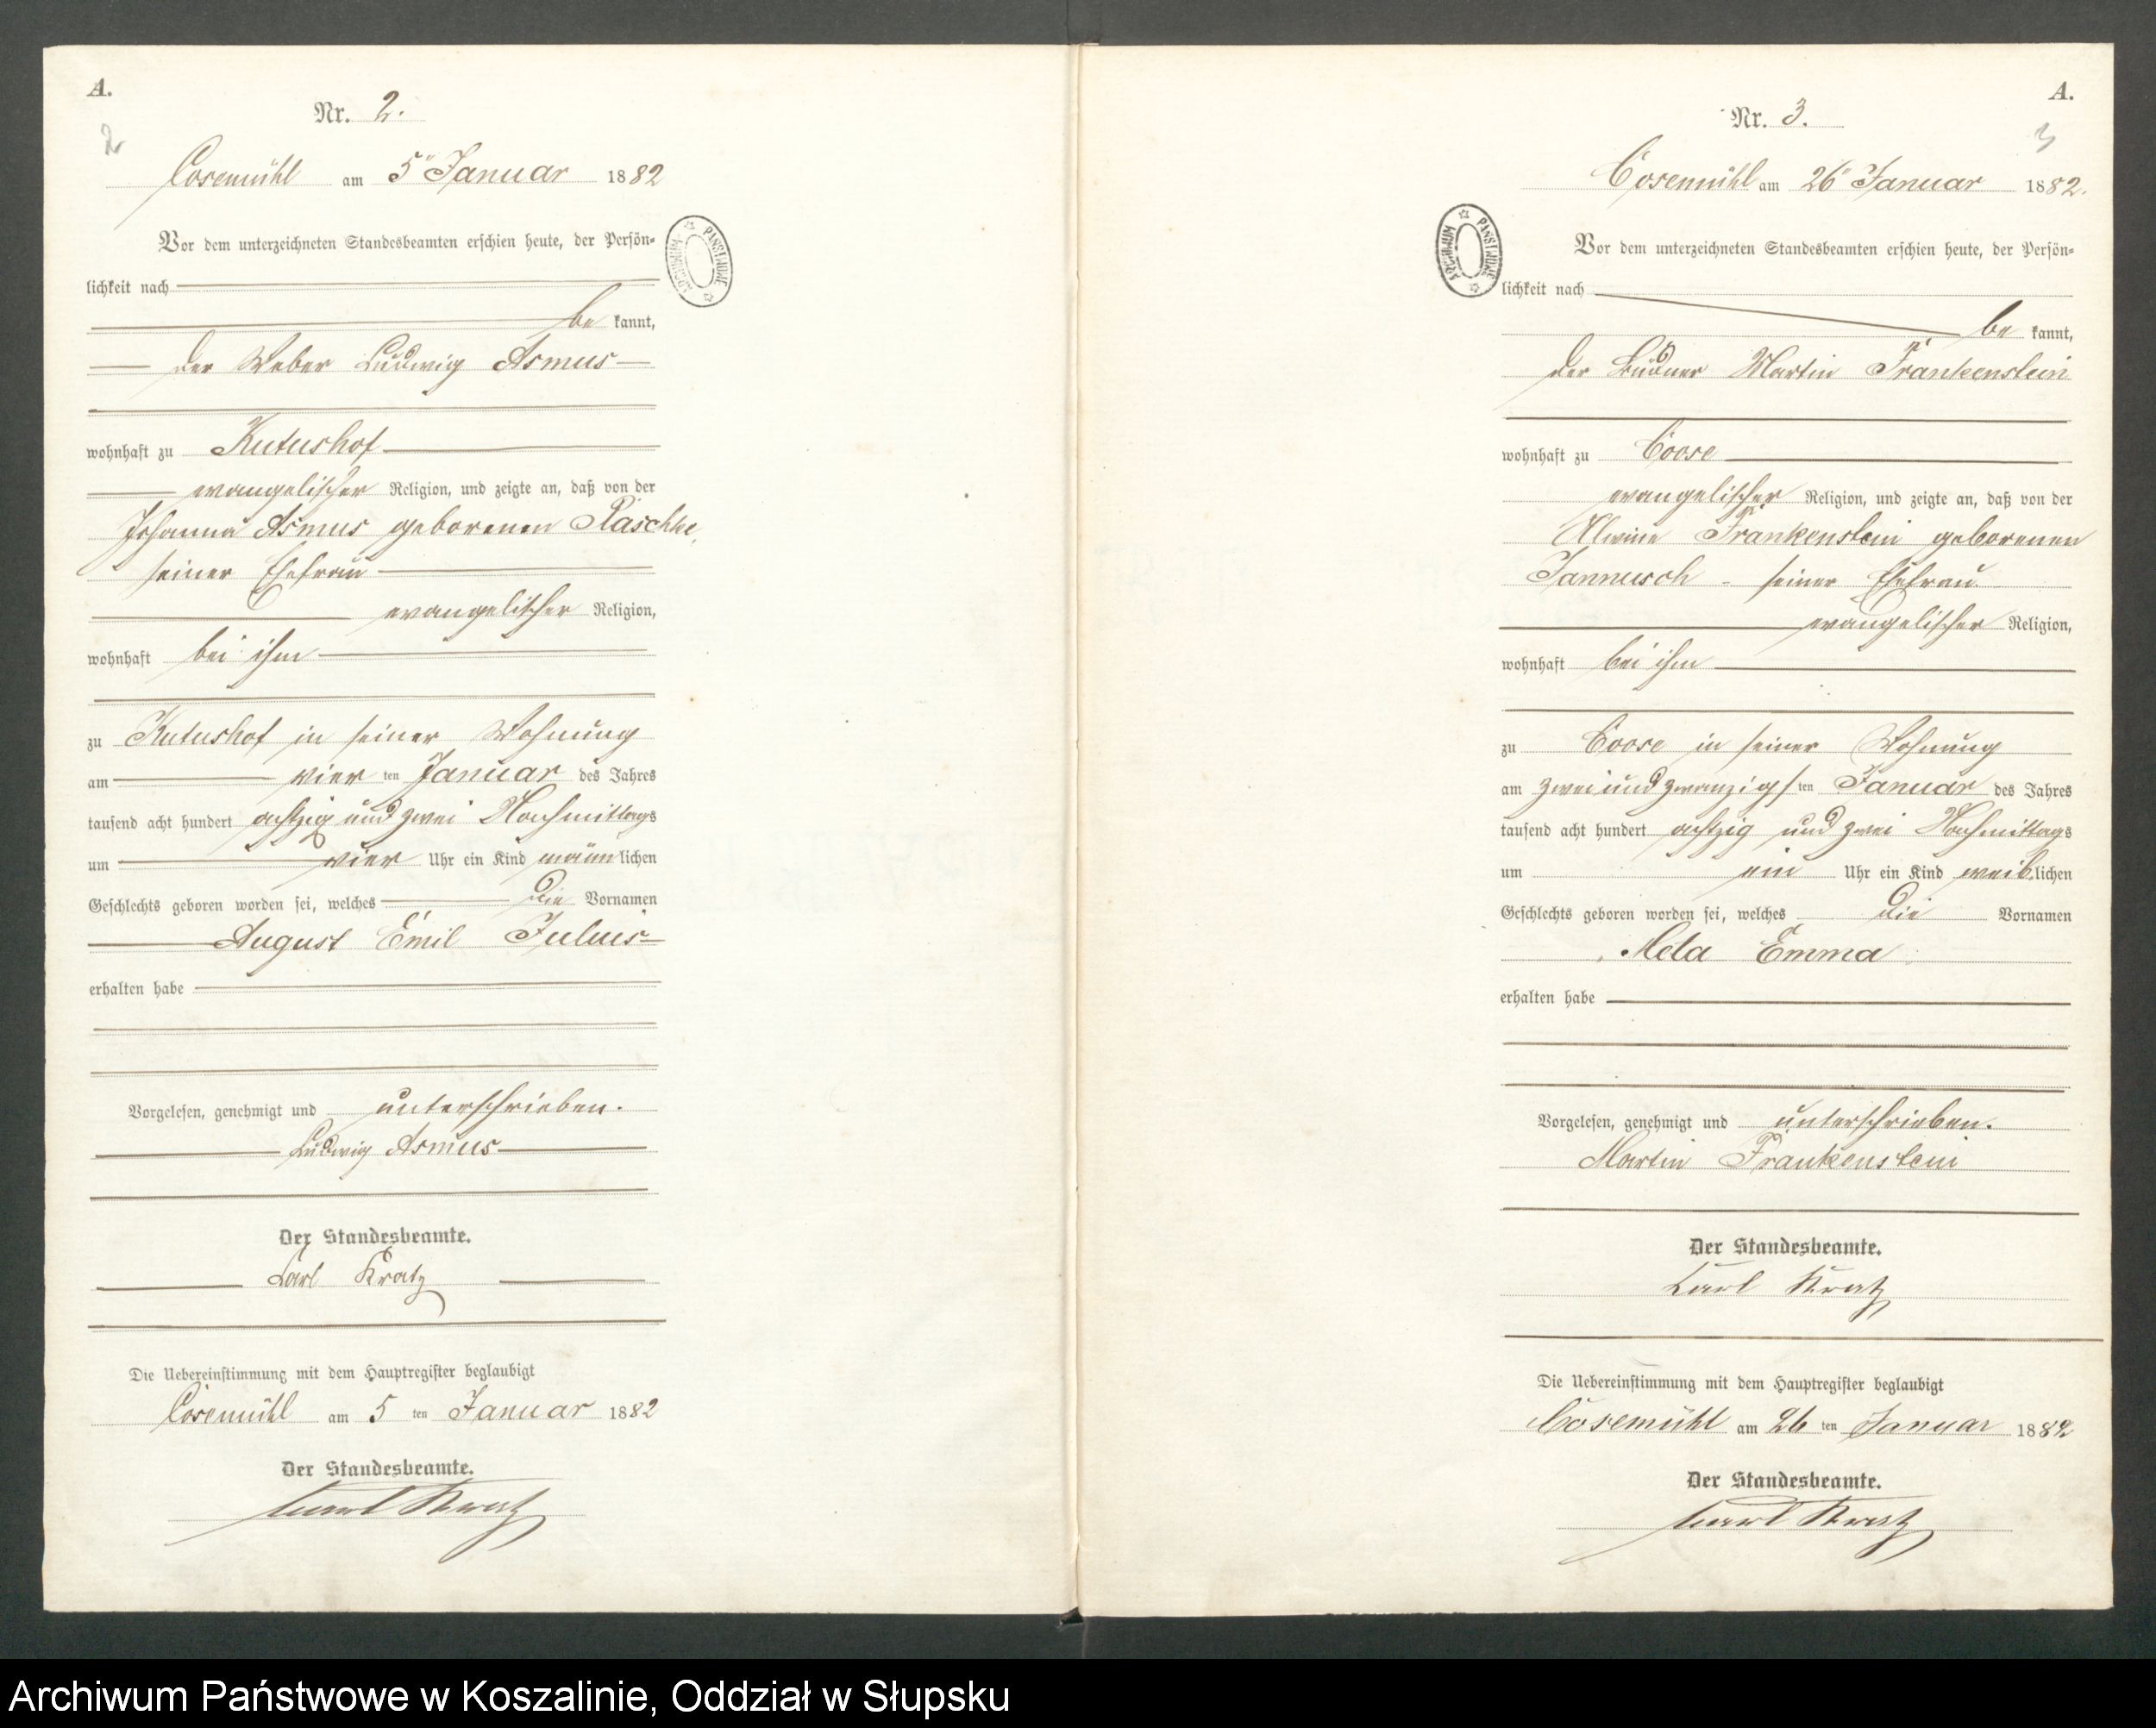 A.
2
Nr. 2.
Cosemühl am 5ten Januar 1882
Vor dem unterzeichneten Standesbeamten erschien heute, der Persön-
lichkeit nach
be kannt,
der Weber Ludwig Asmus
wohnhaft zu Kutushof
evangelischer Religion, und zeigte an, daß von der
Johanna Asmus geborenen Raschke,
seiner Ehefrau
evangelischer Religion,
wohnhaft bei ihm
zu Kutushof in seiner Wohnung
am vier ten Januar des Jahres
tausend acht hundert achtzig und zwei Nachmittags
um vier Uhr ein Kind männlichen
Geschlechts geboren worden sei, welches die Vornamen
August Emil Julius
erhalten habe
Vorgelesen, genehmigt und unterschrieben.
Ludwig Asmus
Der Standesbeamte.
Carl Kratz
Die Uebereinstimmung mit dem Hauptregister beglaubigt
Cosemühl am 5 ten Januar 1882
Der Standesbeamte.
Carl Kratz
ARCHIWUM PAŃSTWOWE
A.
3
Nr. 3.
Cosemühl am 26ten Januar 1882.
Vor dem unterzeichneten Standesbeamten erschien heute, der Persön-
lichkeit nach
be kannt,
der Büdner Martin Frankenstein
wohnhaft zu Coose
evangelischer Religion, und zeigte an, daß von der
Alwine Frankenstein geborenen
Jannusch - seiner Ehefrau
evangelischer Religion,
wohnhaft bei ihm
zu Coose in seiner Wohnung
am zwei und zwanzigs ten Januar des Jahres
tausend acht hundert achtzig und zwei Nachmittags
um ein Uhr ein Kind weiblichen
Geschlechts geboren worden sei, welches die Vornamen
Meta Emma
erhalten habe
Vorgelesen, genehmigt und unterschrieben.
Martin Frankenstein
Der Standesbeamte.
Carl Kratz
Die Uebereinstimmung mit dem Hauptregister beglaubigt
Cosemühl am 26 ten Januar 1882
Der Standesbeamte.
Carl Kratz
ARCHIWUM PAŃSTWOWE
Archiwum Państwowe w Koszalinie, Oddział w Słupsku